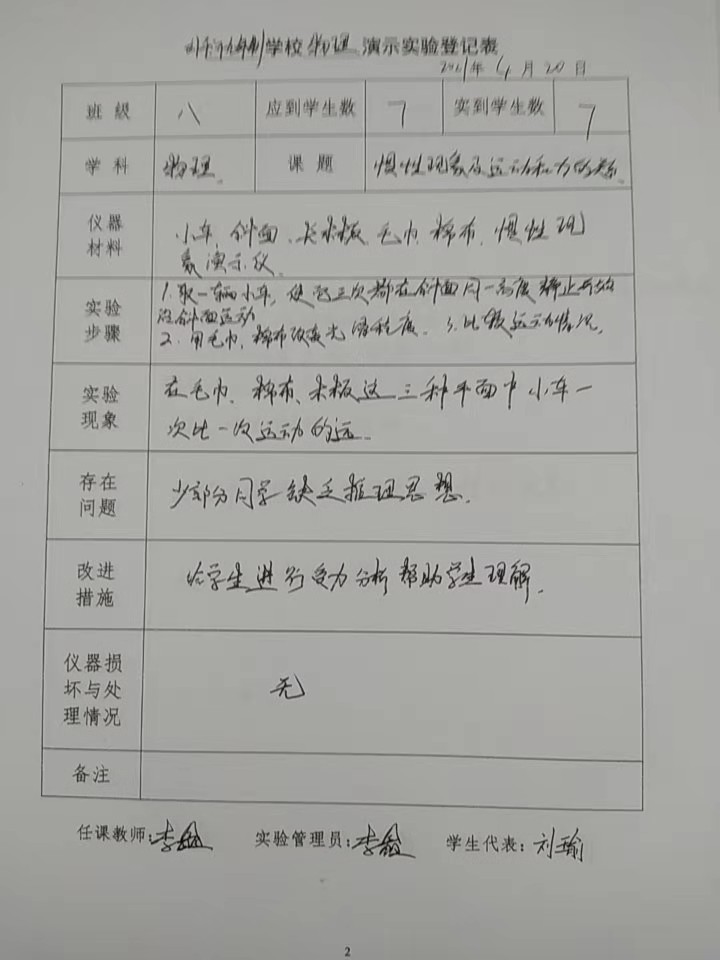 学校 物理 演示实验登记表
2021年 4月 20日
班 级 八 应到学生数 7 实到学生数 7
学 科 物理 课 题 惯性现象及运动和力的关系
仪器
材料
小车、斜面、长木板、毛巾、棉布、惯性现
象演示仪。
实验
步骤
1. 取一辆小车,使它三次都在斜面同一高度静止开始
沿斜面运动
2. 用毛巾、棉布改变光滑程度。 3. 比较运动情况。
实验
现象
在毛巾、棉布、木板这三种平面中小车一
次比一次运动的远。
存在
问题
少部分同学缺乏推理思想。
改进
措施
给学生进行受力分析帮助学生理解。
仪器损
坏与处
理情况
无
备注
任课教师:李 实验管理员:李 学生代表:刘瑜
2